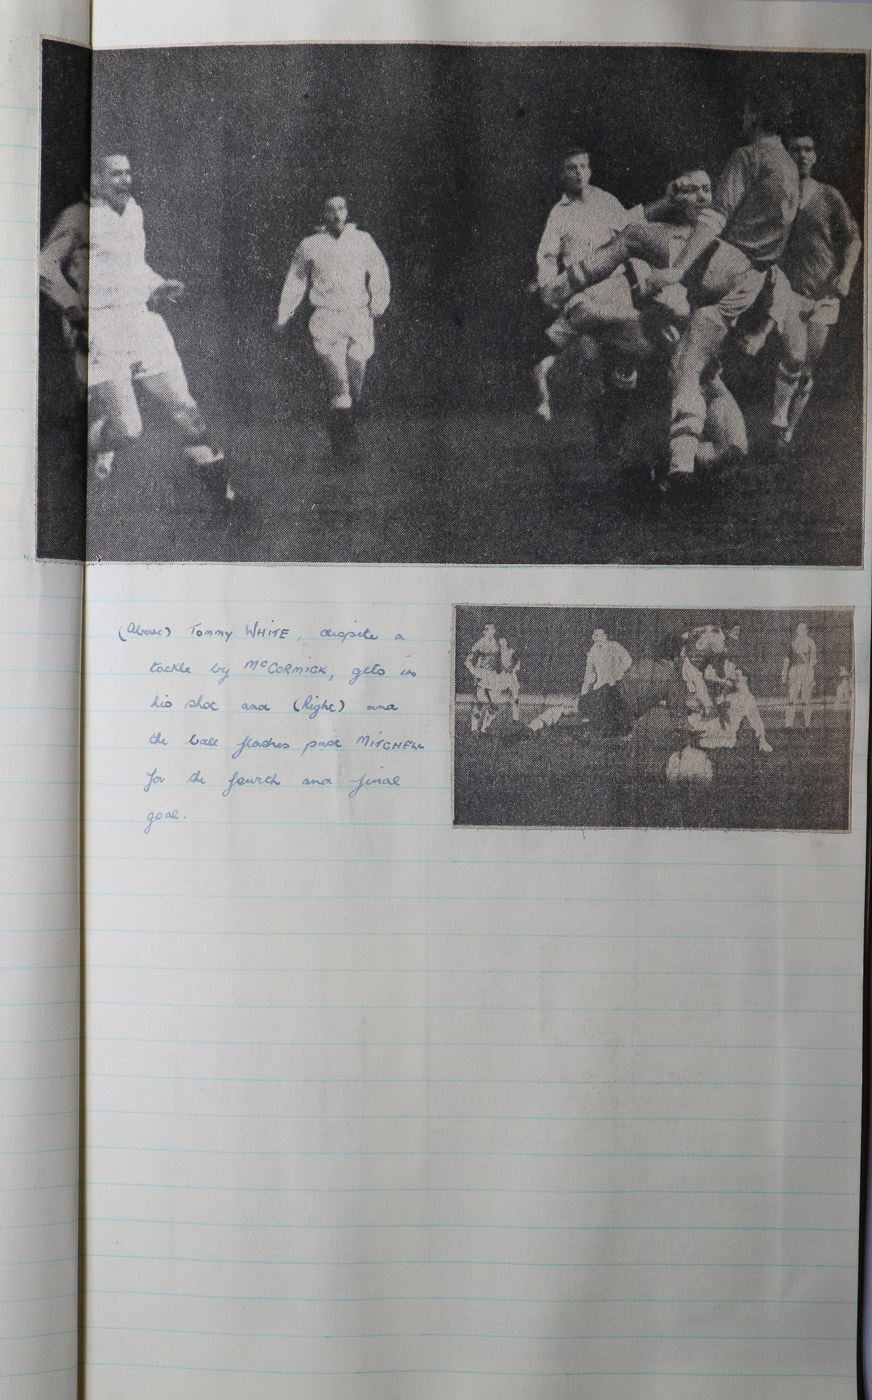 (Above) Tommy WHITE, despite a
tackle by McCORMICK, gets in
his shot and (Right) and
the ball flashes past MITCHELL
for the fourth and final
goal.